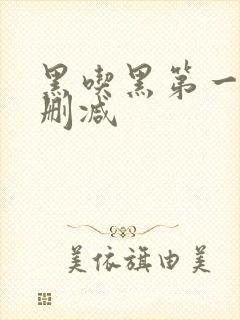 黑喫黑第一
删减
美依旗由美